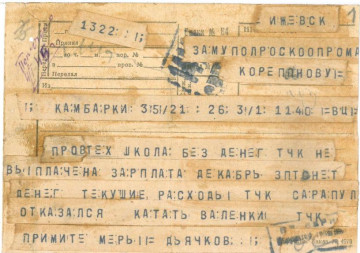 1322
ИЖЕВСК
ЗАМУПОЛРОСКООПРОМА
КОРЕПАНОВУ=
КАМБАРКИ 351/21 26 3/1 1140 =ВЦ=
ПРОФТЕХ ШКОЛА БЕЗ ДЕНЕГ ТЧК НЕ
ВЫПЛАЧЕНА ЗАРПЛАТА ДЕКАБРЬ ЗПТ НЕТ
ДЕНЕГ ТЕКУЩИЕ РАСХОДЫ ТЧК САРАПУЛ
ОТКАЗАЛСЯ КАТАТЬ ВАЛЕНКИ ТЧК
ПРИМИТЕ МЕРЫ= ДЬЯЧКОВ